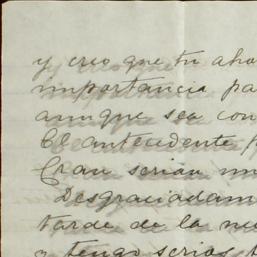 y creo que tu aho
importancia pa
aunque sea con
El antecedente
Cran serian
Desgraciadam
tarde de la
y tengo serios